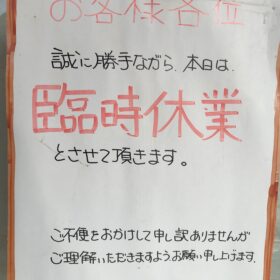 お客様各位
誠に勝手ながら、本日は、
臨時休業
とさせて頂きます。
ご不便をおかけして申し訳ありませんが
ご理解いただきますようお願い申し上げます。